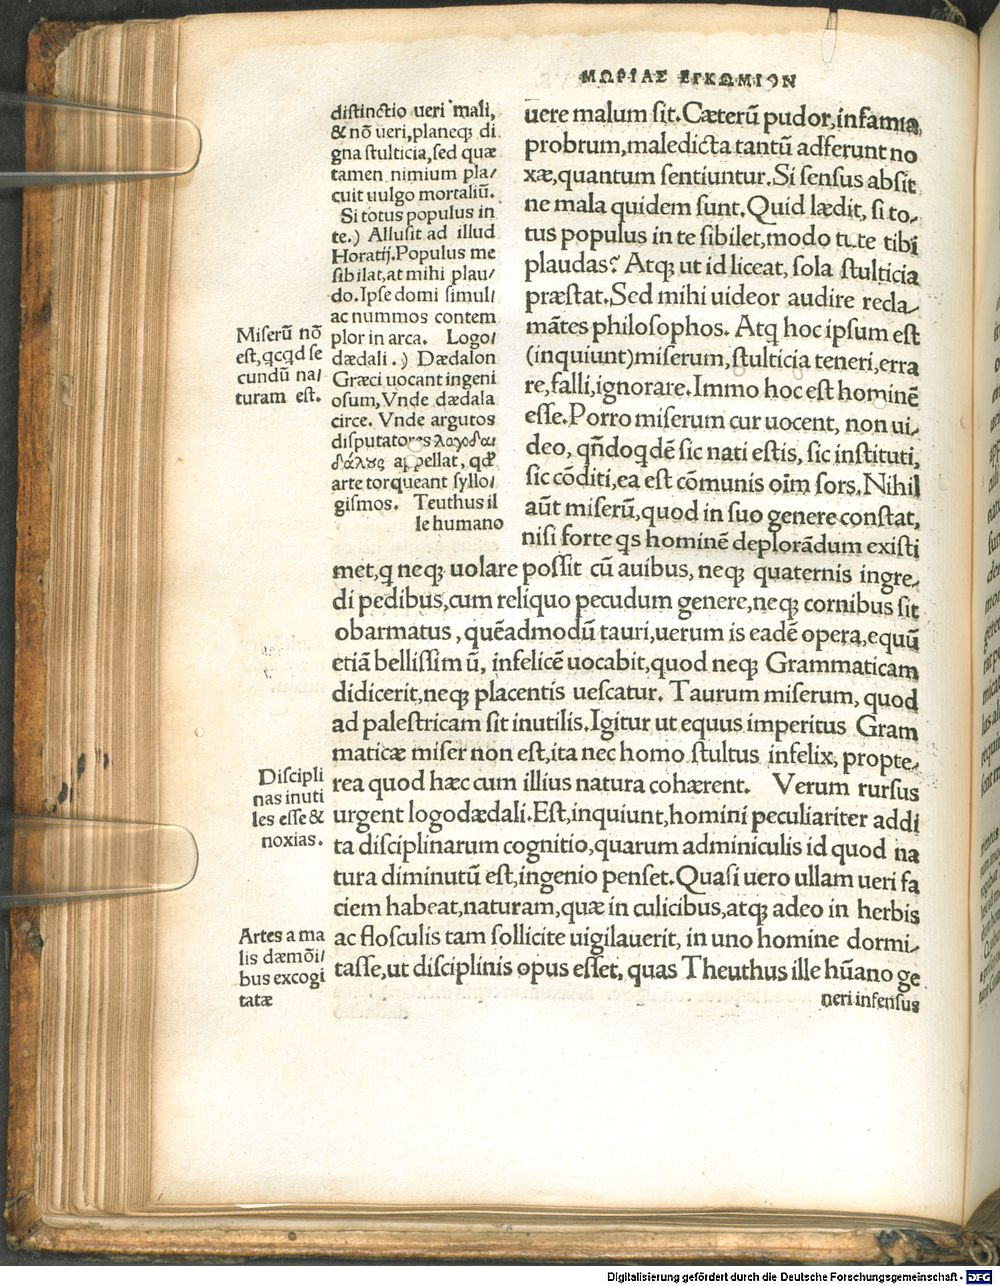 ΜΩΡΙΑΣ ΕΓΚΩΜΙΟΝ
distinctio ueri mali,
& nō ueri, planeqꝫ di
gna stulticia, sed quæ
tamen nimium pla/
cuit uulgo mortaliū.
Si totus populus in
te.) Allusit ad illud
Horatij. Populus me
sibilat, at mihi plau/
do. Ipse domi simul/
ac nummos contem
plor in arca. Logo/
dædali.) Dædalon
Græci uocant ingeni
osum, Vnde dædala
circe. Vnde argutos
disputatores λογοδαι
δάλους appellat, qđ
arte torqueant syllo/
gismos. Teuthus il
le humano
Miserū nō
est, qcqd se
cundū na/
turam est.
uere malum sit. Cæterū pudor, infamia,
probrum, maledicta tantū adferunt no
xæ, quantum sentiuntur. Si sensus absit
ne mala quidem sunt. Quid lædit, si to-
tus populus in te sibilet, modo tute tibi
plaudas? Atqꝫ ut id liceat, sola stulticia
præstat. Sed mihi uideor audire recla-
mātes philosophos. Atq hoc ipsum est
(inquiunt) miserum, stulticia teneri, erra
re, falli, ignorare. Immo hoc est hominē
esse. Porro miserum cur uocent, non ui-
deo, qñdoqdē sic nati estis, sic instituti,
sic cōditi, ea est cōmunis oīm sors. Nihil
aūt miserū, quod in suo genere constat,
nisi forte qs hominē deplorādum existi
met, q neqꝫ uolare possit cū auibus, neqꝫ quaternis ingre-
di pedibus, cum reliquo pecudum genere, neqꝫ cornibus sit
obarmatus, quēadmodū tauri, uerum is eadē opera, equū
etiā bellissimū, infelicē uocabit, quod neqꝫ Grammaticam
didicerit, neqꝫ placentis uescatur. Taurum miserum, quod
ad palestricam sit inutilis. Igitur ut equus imperitus Gram
maticæ miser non est, ita nec homo stultus infelix, propte-
rea quod hæc cum illius natura cohærent. Verum rursus
urgent logodædali. Est, inquiunt, homini peculiariter addi
ta disciplinarum cognitio, quarum adminiculis id quod na
tura diminutū est, ingenio penset. Quasi uero ullam ueri fa
ciem habeat, naturam, quæ in culicibus, atqꝫ adeo in herbis
ac flosculis tam sollicite uigilauerit, in uno homine dormi-
tasse, ut disciplinis opus esset, quas Theuthus ille hūano ge
neri infensus
Discipli
nas inuti
les esse &
noxias.
Artes a ma
lis dæmōi/
bus excogi
tatæ
Digitalisierung gefördert durch die Deutsche Forschungsgemeinschaft - DFG